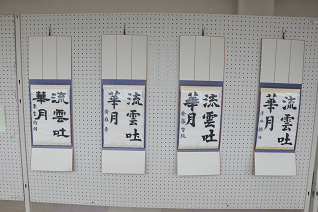 流雲吐
華月
流雲吐
華月
流雲吐
華月
流雲吐
華月